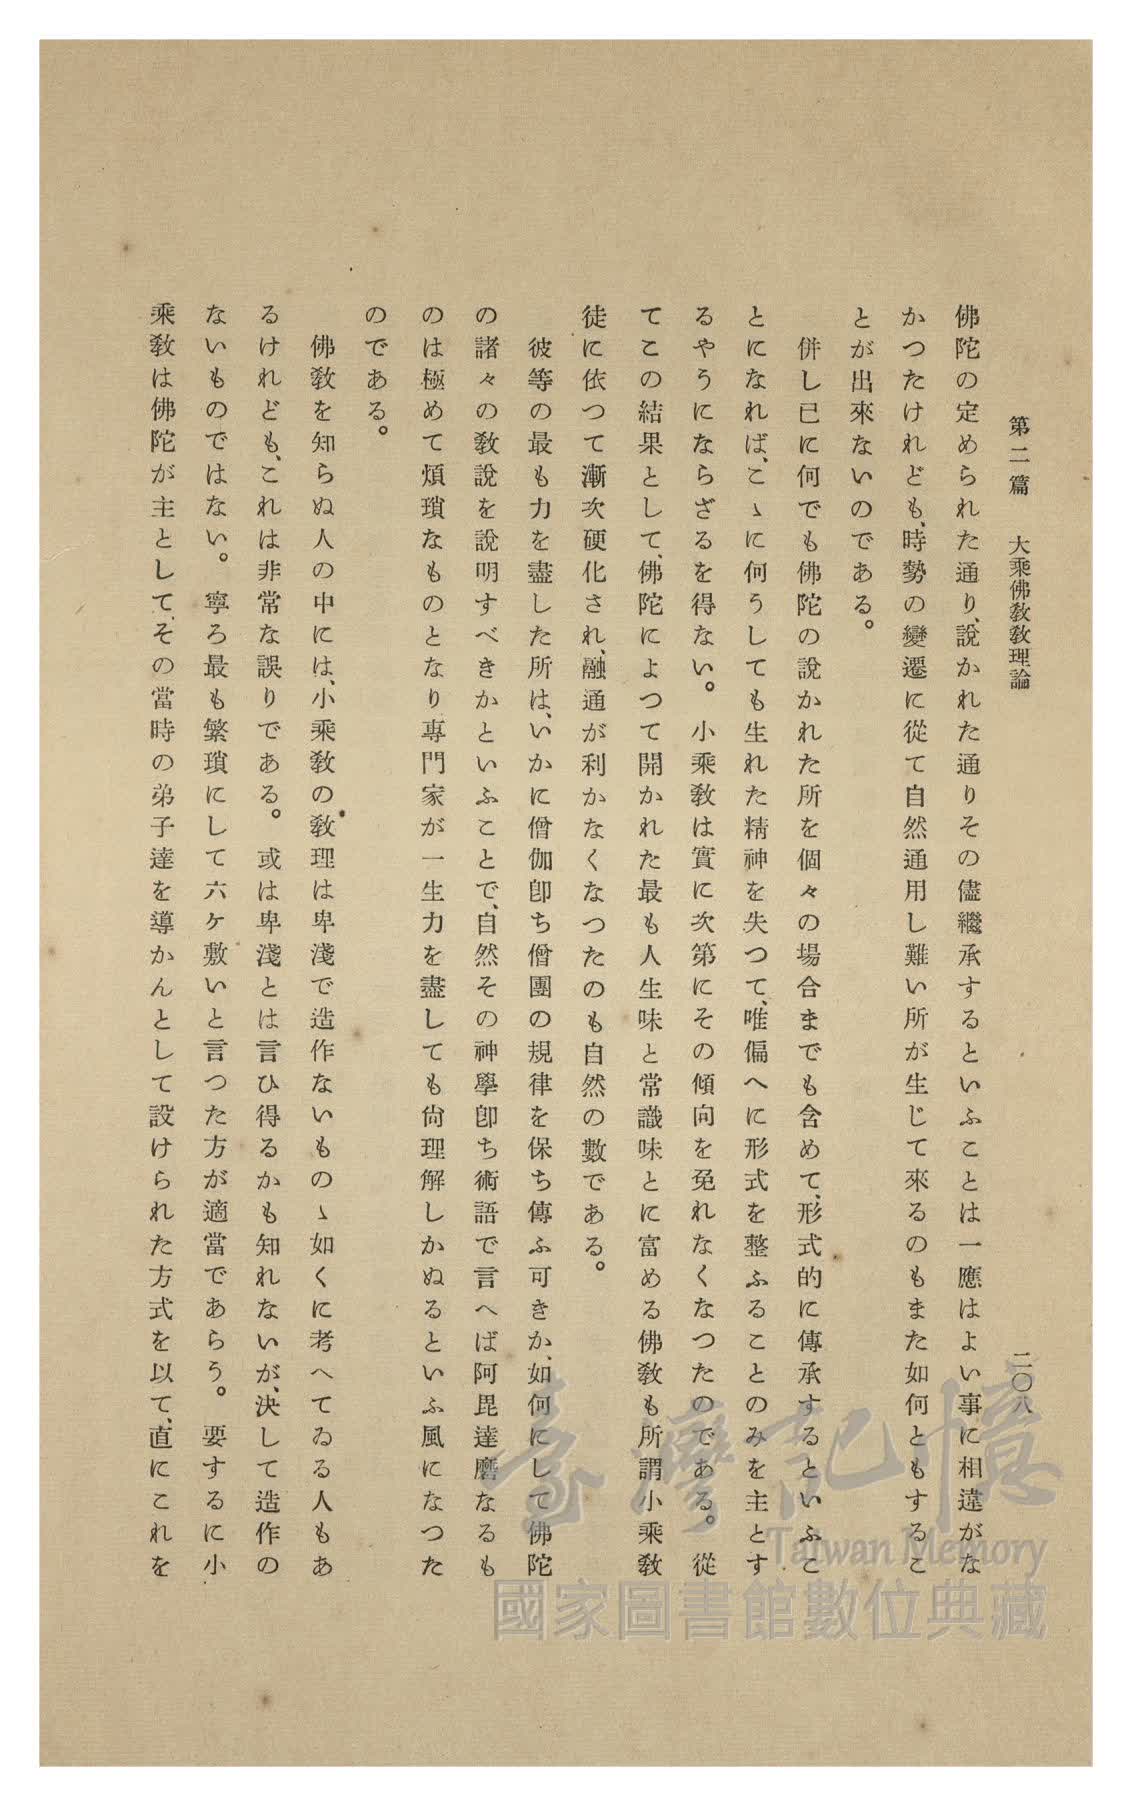 第二篇　大乘佛敎敎理論　二〇八
佛陀の定められた通り、說かれた通りその儘繼承するといふことは一應はよい事に相違がな
かつたけれども、時勢の變遷に從て自然通用し難い所が生じて來るのもまた如何ともするこ
とが出來ないのである。
併し已に何でも佛陀の說かれた所を個々の場合までも含めて、形式的に傳承するといふこ
とになれば、こゝに何うしても生れた精神を失つて、唯偏へに形式を整ふることのみを主とす
るやうにならざるを得ない。小乘敎は實に次第にその傾向を免れなくなつたのである。從
てこの結果として、佛陀によつて開かれた最も人生味と常識味とに富める佛敎も所謂小乘敎
徒に依つて漸次硬化され、融通が利かなくなつたのも自然の數である。
彼等の最も力を盡した所は、いかに僧伽卽ち僧團の規律を保ち傳ふ可きか、如何にして佛陀
の諸々の敎說を說明すべきかといふことで、自然その神學卽ち術語で言へば阿毘達磨なるも
のは極めて煩瑣なものとなり專門家が一生力を盡しても尙理解しかぬるといふ風になつた
のである。
佛敎を知らぬ人の中には、小乘敎の敎理は卑淺で造作ないものゝ如くに考へてゐる人もあ
るけれども、これは非常な誤りである。或は卑淺とは言ひ得るかも知れないが、決して造作の
ないものではない。寧ろ最も繁瑣にして六ケ敷いと言つた方が適當であらう。要するに小
乘敎は佛陀が主として、その當時の弟子達を導かんとして設けられた方式を以て、直にこれを
臺灣記憶
Taiwan Memory
國家圖書館數位典藏